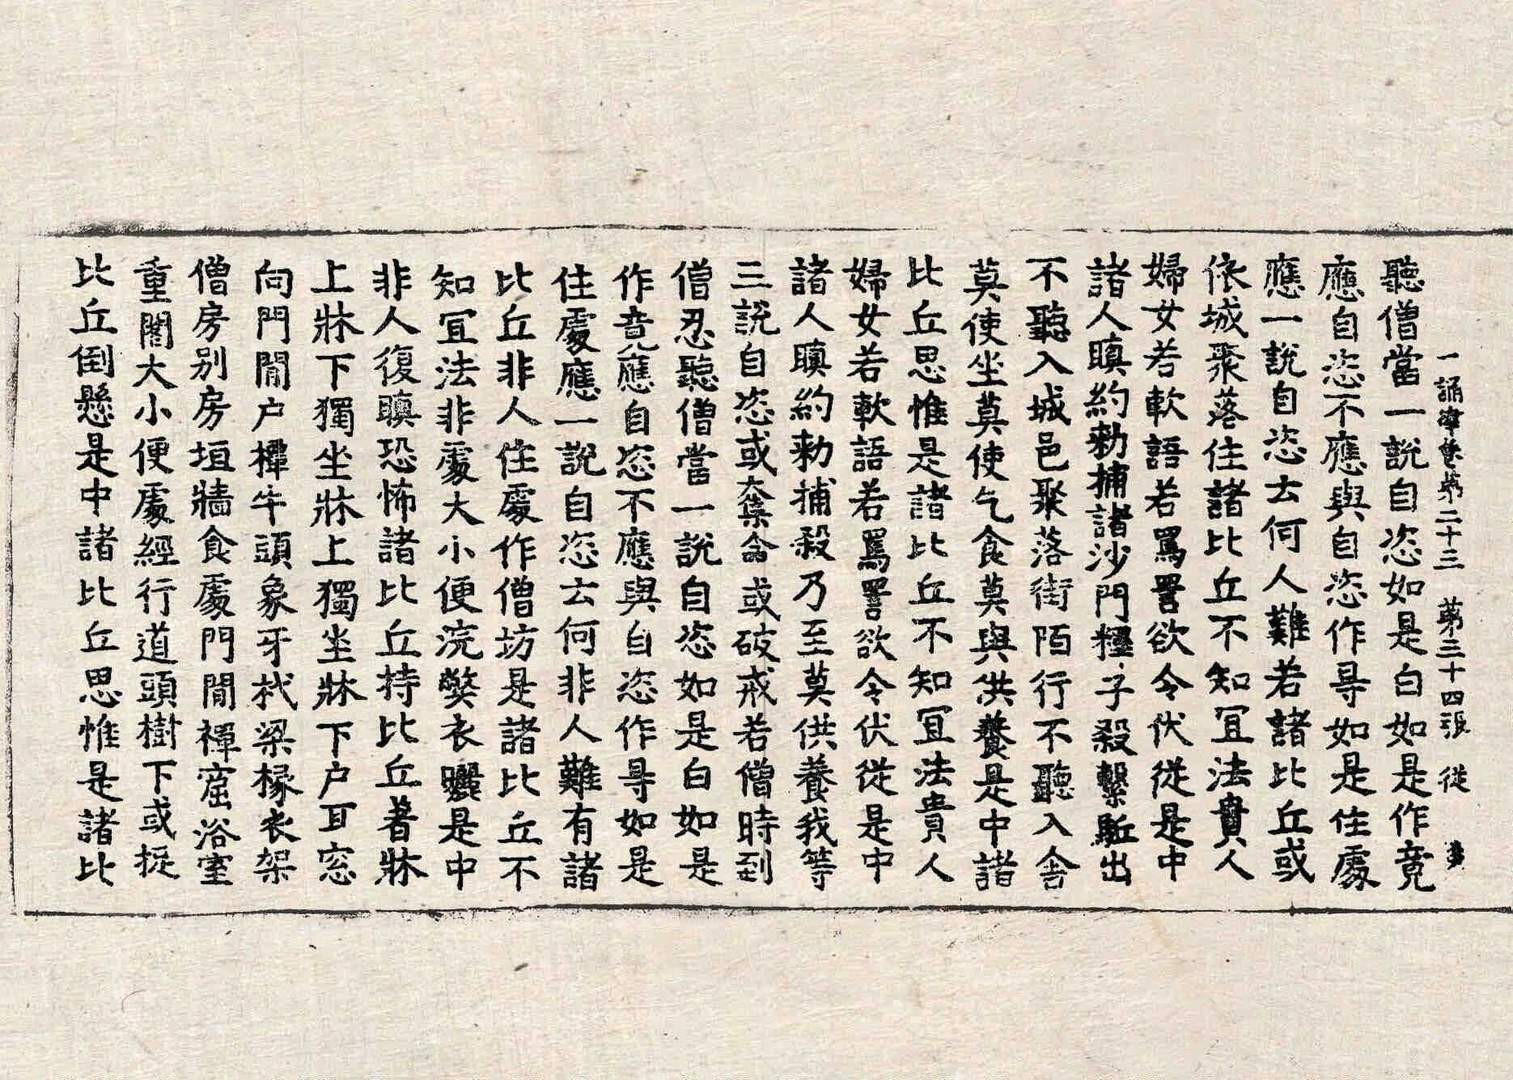 十誦律卷第二十三 第三十四張 從
聽僧當一說自恣如是白如是作竟
應自恣不應與自恣作㝵如是住處
應一說自恣去何人難若諸比丘或
依城聚落住諸比丘不知冝法貴人
婦女若軟語若罵詈欲令伏從是中
諸人瞋約勑捕諸沙門糭子殺繫駈出
不聽入城邑聚落街陌行不聽入舍
莫使坐莫使乞食莫與供養是中諸
比丘思惟是諸比丘不知冝法貴人
婦女若軟語若罵詈欲令伏從是中
諸人瞋約勑捕殺乃至莫供養我等
三說自恣或奪命或破戒若僧時到
僧忍聽僧當一說自恣如是白如是
作竟應自恣不應與自恣作㝵如是
住處應一說自恣去何非人難有諸
比丘非人住處作僧坊是諸比丘不
知冝法非處大小便浣弊衣曬是中
非人復瞋恐怖諸比丘持比丘著牀
上牀下獨坐牀上獨坐牀下户耳窓
向門閒户橝牛頭象牙杙梁椽衣架
僧房别房垣牆食處門閒禪窟浴室
重閣大小便處經行道頭樹下或捉
比丘倒懸是中諸比丘思惟是諸比